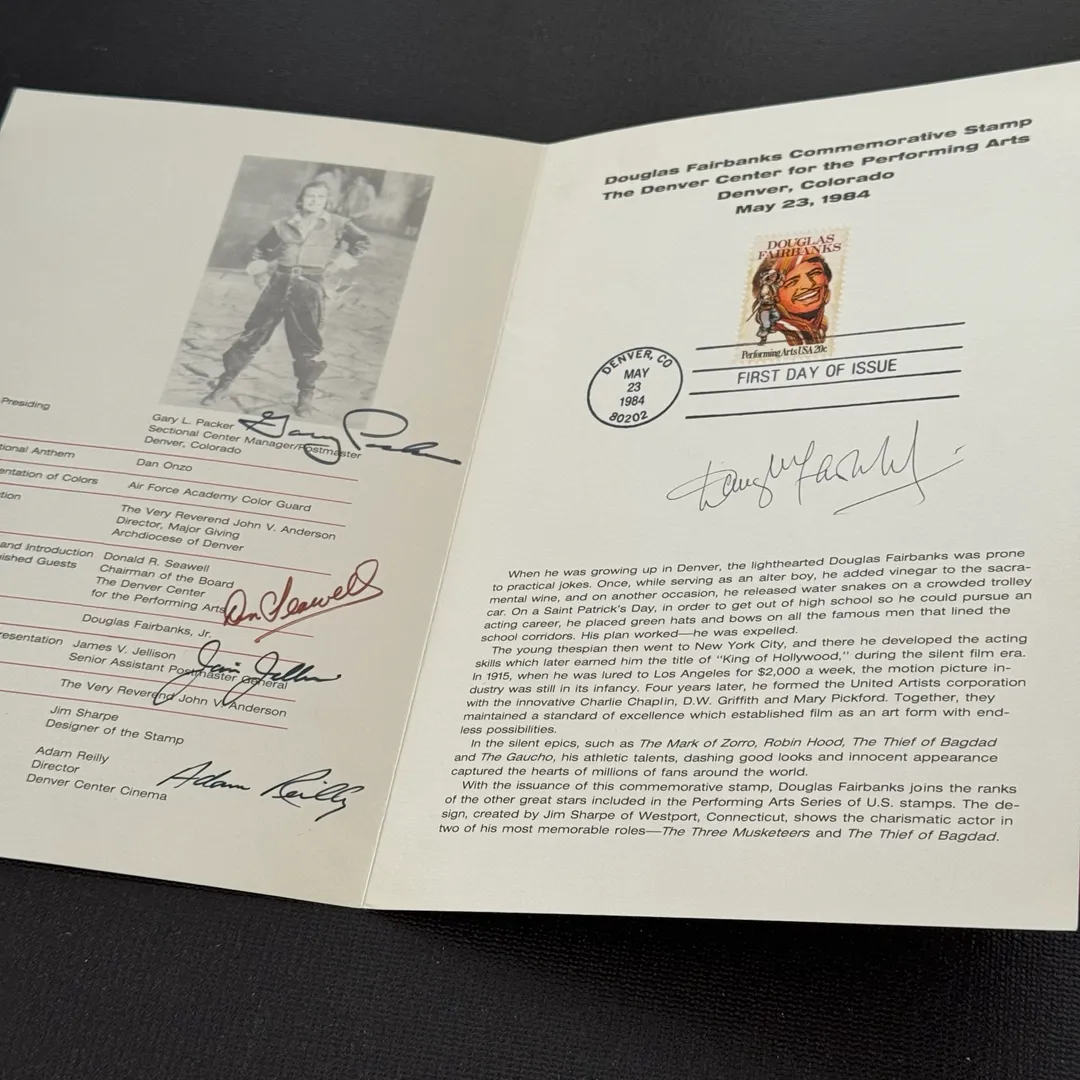 Presiding
Gary L. Packer
Sectional Center Manager/Postmaster
Denver, Colorado
Gary Packer
tional Anthem
Dan Onzo
entation of Colors
Air Force Academy Color Guard
tion
The Very Reverend John V. Anderson
Director, Major Giving
Archdiocese of Denver
and Introduction
ished Guests
Donald R. Seawell
Chairman of the Board
The Denver Center
for the Performing Arts
Don Seawell
Douglas Fairbanks, Jr.
resentation
James V. Jellison
Senior Assistant Postmaster General
Jim Jellison
The Very Reverend John V. Anderson
Jim Sharpe
Designer of the Stamp
Adam Reilly
Director
Denver Center Cinema
Adam Reilly
Douglas Fairbanks Commemorative Stamp
The Denver Center for the Performing Arts
Denver, Colorado
May 23, 1984
DOUGLAS
FAIRBANKS
Performing Arts USA 20c
DENVER, CO
MAY
23
1984
80202
FIRST DAY OF ISSUE
When he was growing up in Denver, the lighthearted Douglas Fairbanks was prone
to practical jokes. Once, while serving as an alter boy, he added vinegar to the sacra-
mental wine, and on another occasion, he released water snakes on a crowded trolley
car. On a Saint Patrick's Day, in order to get out of high school so he could pursue an
acting career, he placed green hats and bows on all the famous men that lined the
school corridors. His plan worked—he was expelled.
The young thespian then went to New York City, and there he developed the acting
skills which later earned him the title of "King of Hollywood," during the silent film era.
In 1915, when he was lured to Los Angeles for $2,000 a week, the motion picture in-
dustry was still in its infancy. Four years later, he formed the United Artists corporation
with the innovative Charlie Chaplin, D.W. Griffith and Mary Pickford. Together, they
maintained a standard of excellence which established film as an art form with end-
less possibilities.
In the silent epics, such as The Mark of Zorro, Robin Hood, The Thief of Bagdad
and The Gaucho, his athletic talents, dashing good looks and innocent appearance
captured the hearts of millions of fans around the world.
With the issuance of this commemorative stamp, Douglas Fairbanks joins the ranks
of the other great stars included in the Performing Arts Series of U.S. stamps. The de-
sign, created by Jim Sharpe of Westport, Connecticut, shows the charismatic actor in
two of his most memorable roles—The Three Musketeers and The Thief of Bagdad.